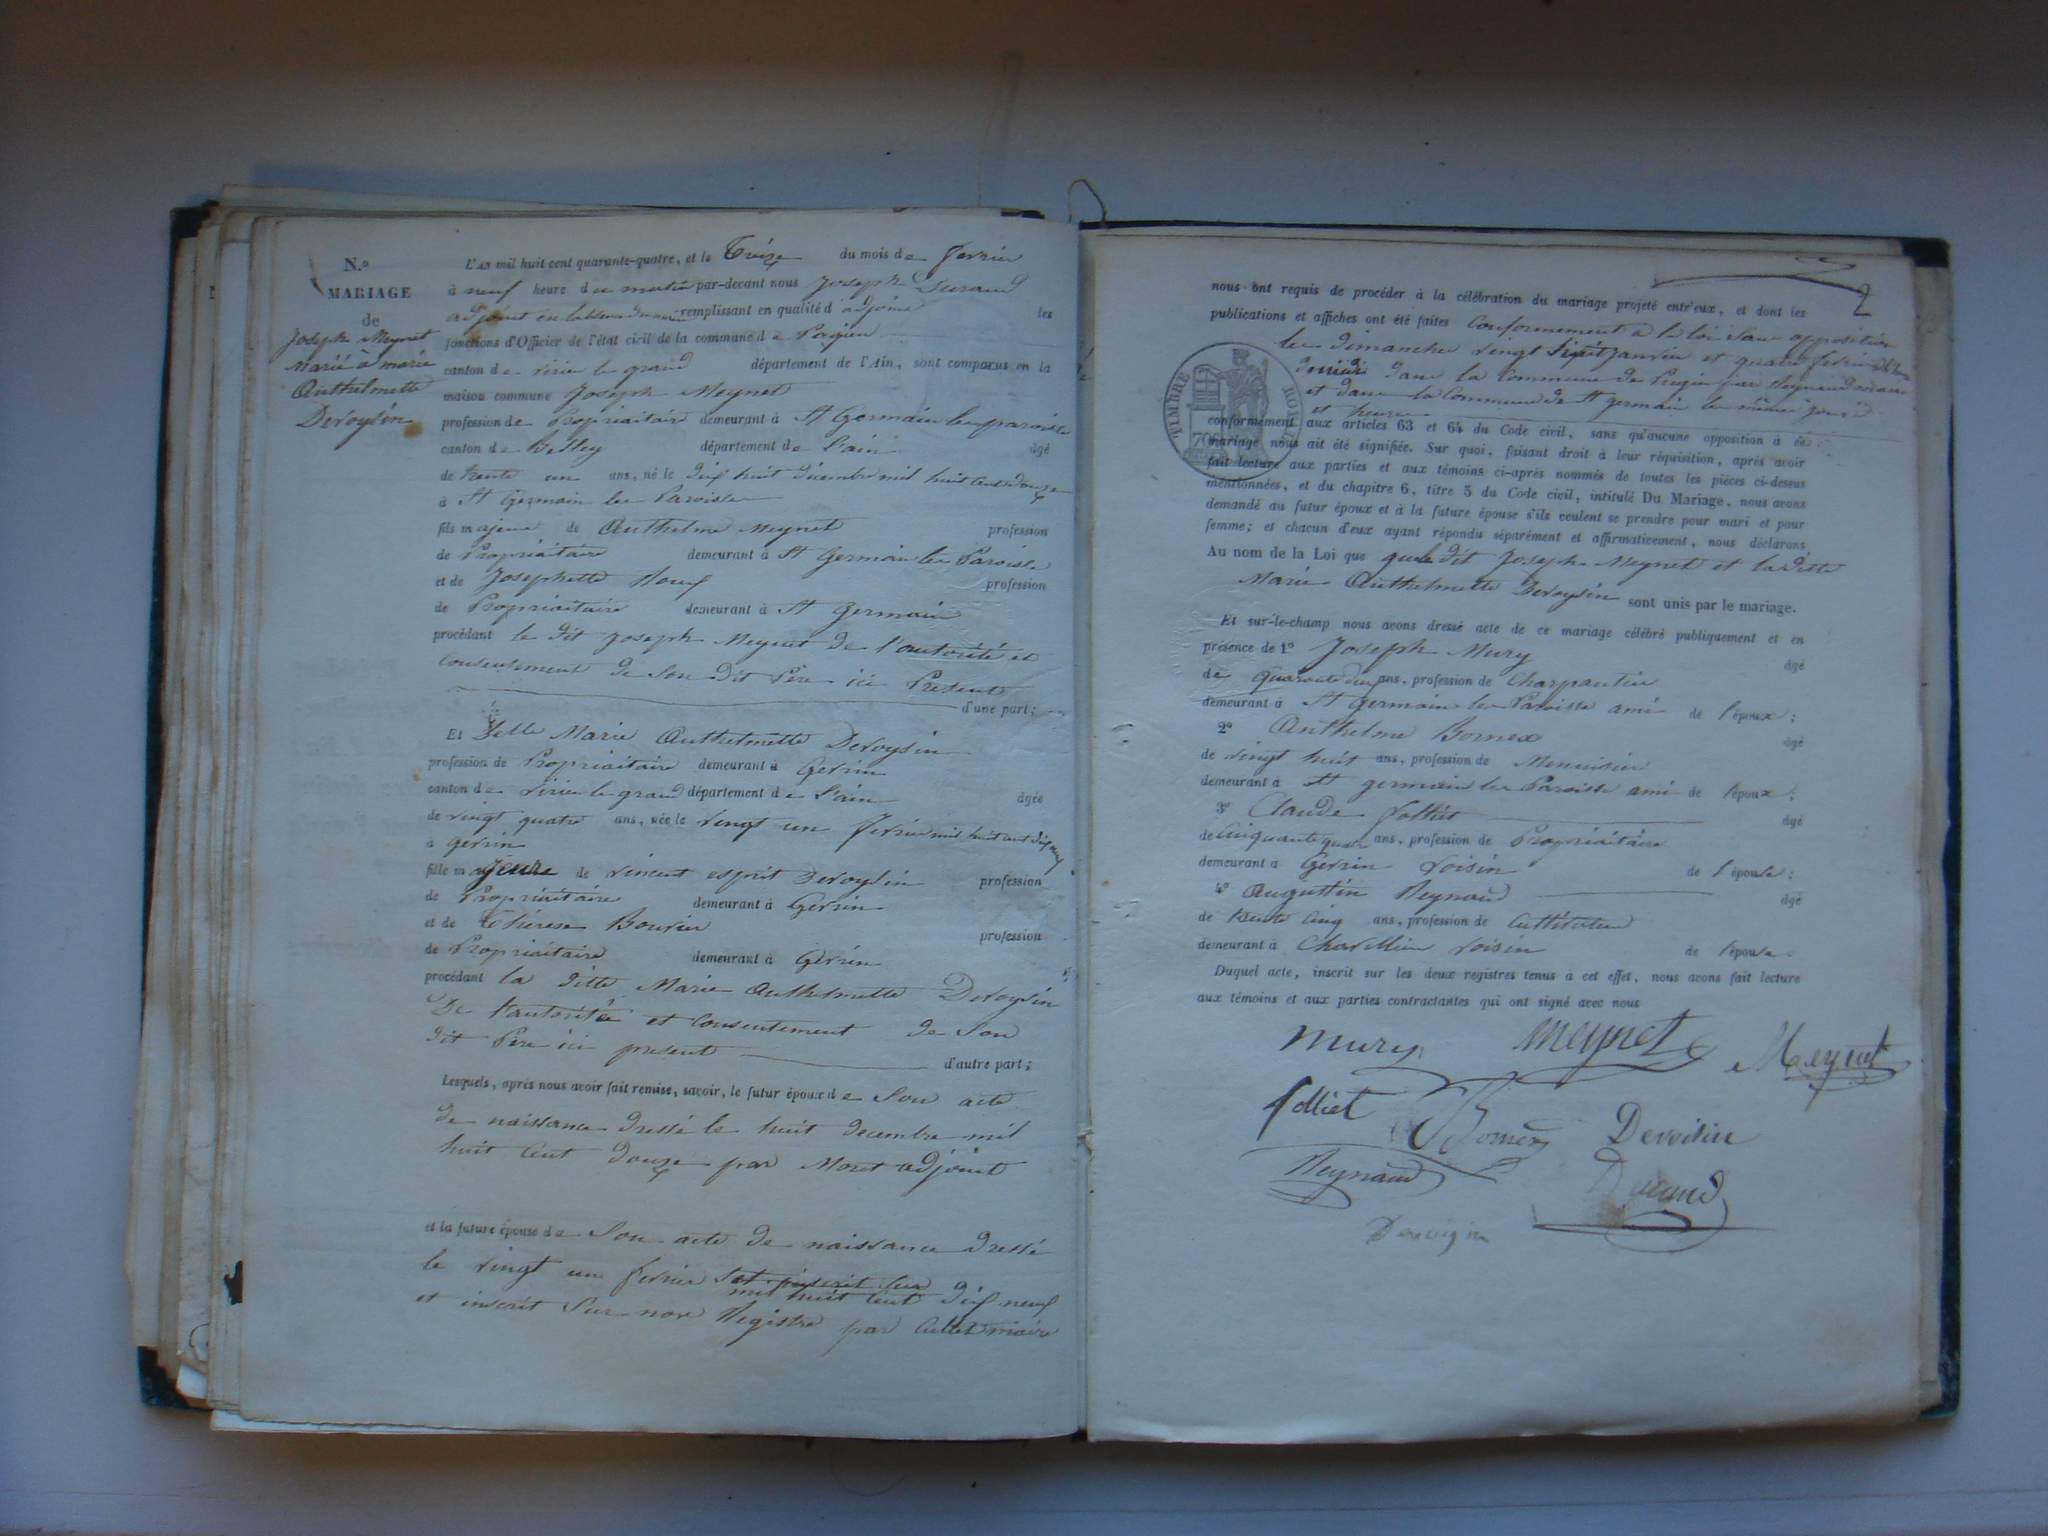 N.o
MARIAGE
de
Joseph Meynet
Marié à marie
Authelmette
Devoysin
L'AN mil huit cent quarante-quatre, et le Treize du mois de fevrier
à neuf heure du matin par-devant nous Joseph Durand
adjoint en labsence du maire remplissant en qualité d adjoint les
fonctions d'Officier de l'état civil de la commune de Pugieu
canton de virieu le grand département de l'Ain, sont comparus en la
maison commune Joseph Meynet
profession de Propriaitaire demeurant à St Germain les paroisse
canton de Belley département de l'ain âgé
de trente un ans, né le dix huit decembre mil huit cent douze
à St Germain les Paroisse
fils majeur de Authelme Meynet profession
de Propriaitaire demeurant à St Germain les Paroisse
et de Josephette profession
de Propriaitaire demeurant à St Germain
procédant le dit joseph Meynet de l'autorité et
Consentement de Son dit Père ici Présent
d'une part;
Et Delle Marie Authelmette Devoysin
profession de Propriaitaire demeurant à Gevrin
canton de virieu le grand département de l'ain âgée
de vingt quatre ans, née le vingt un fevrier mil huit cent dix neuf
à gevrin
fille majeure de vincent esprit Devoysin profession
de Propriaitaire demeurant à Gevrin
et de Thérèse Bouvier profession
de Propriaitaire demeurant à Gevrin
procédant la ditte Marie Authelmette Devoysin
De l'autorité et Consentement de Son
dit Père ici present d'autre part;
Lesquels, après nous avoir fait remise, savoir, le futur époux de Son acte
de naissance dressé le huit decembre mil
huit cent douze par Moret adjoint
et la future épouse de Son acte de naissance dressé
le vingt un fevrier et inscrit sur
mil huit cent dix neuf
et inscrit Sur nos Registre par Cullet maire
2
nous ont requis de procéder à la célébration du mariage projeté entr'eux, et dont les
publications et affiches ont été faites Conformement a la loi Sans opposition
les dimanches vingt huit janvier et quatre fevrier
dans la Commune de Pugieu par Reynaud maire
et dans la Commune de St germain les même jour
et heure
conformément aux articles 63 et 64 du Code civil, sans qu'aucune opposition à ce
mariage nous ait été signifiée. Sur quoi, faisant droit à leur réquisition, après avoir
fait lecture aux parties et aux témoins ci-après nommés de toutes les pièces ci-dessus
mentionnées, et du chapitre 6, titre 5 du Code civil, intitulé Du Mariage, nous avons
demandé au futur époux et à la future épouse s'ils veulent se prendre pour mari et pour
femme; et chacun d'eux ayant répondu séparément et affirmativement, nous déclarons
Au nom de la Loi que que le dit Joseph Meynet et la ditte
Marie Authelmette Devoysin sont unis par le mariage.
Et sur-le-champ nous avons dressé acte de ce mariage célébré publiquement et en
présence de 1° Joseph Mury âgé
de quarante deux ans, profession de Charpantier
demeurant à St Germain les Paroisse ami de l'époux;
2° Authelme Bornex âgé
de vingt huit ans, profession de Menuisier
demeurant à St germain les Paroisse ami de l'époux;
3° Claude folliet âgé
de Cinquante quatre ans, profession de Propriaitaire
demeurant à Gevrin voisin de l'épouse;
4° Augustin Reynaud âgé
de trente Cinq ans, profession de Cultivateur
demeurant à Chavillieu voisin de l'épouse.
Duquel acte, inscrit sur les deux registres tenus à cet effet, nous avons fait lecture
aux témoins et aux parties contractantes qui ont signé avec nous
TIMBRE ROYAL
70
mury Meynet Meynet
folliet Bornex Devoisin
Reynaud Durand